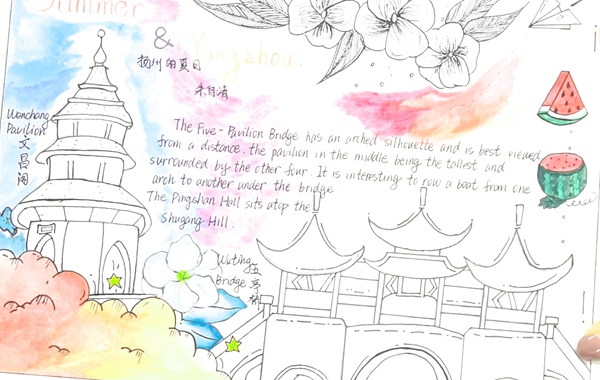 Summer
& Yangzhou.
扬州的夏日
朱自清
Wenchang
Pavilion
文昌阁
The Five-Pavilion Bridge has an arched silhouette and is best viewed
from a distance. the pavilion in the middle being the tallest and
surrounded by the other four. It is interesting to row a boat from one
arch to another under the bridge
The Pingshan Hall sits atop the
Shugang Hill.
Wuting
Bridge
五亭桥